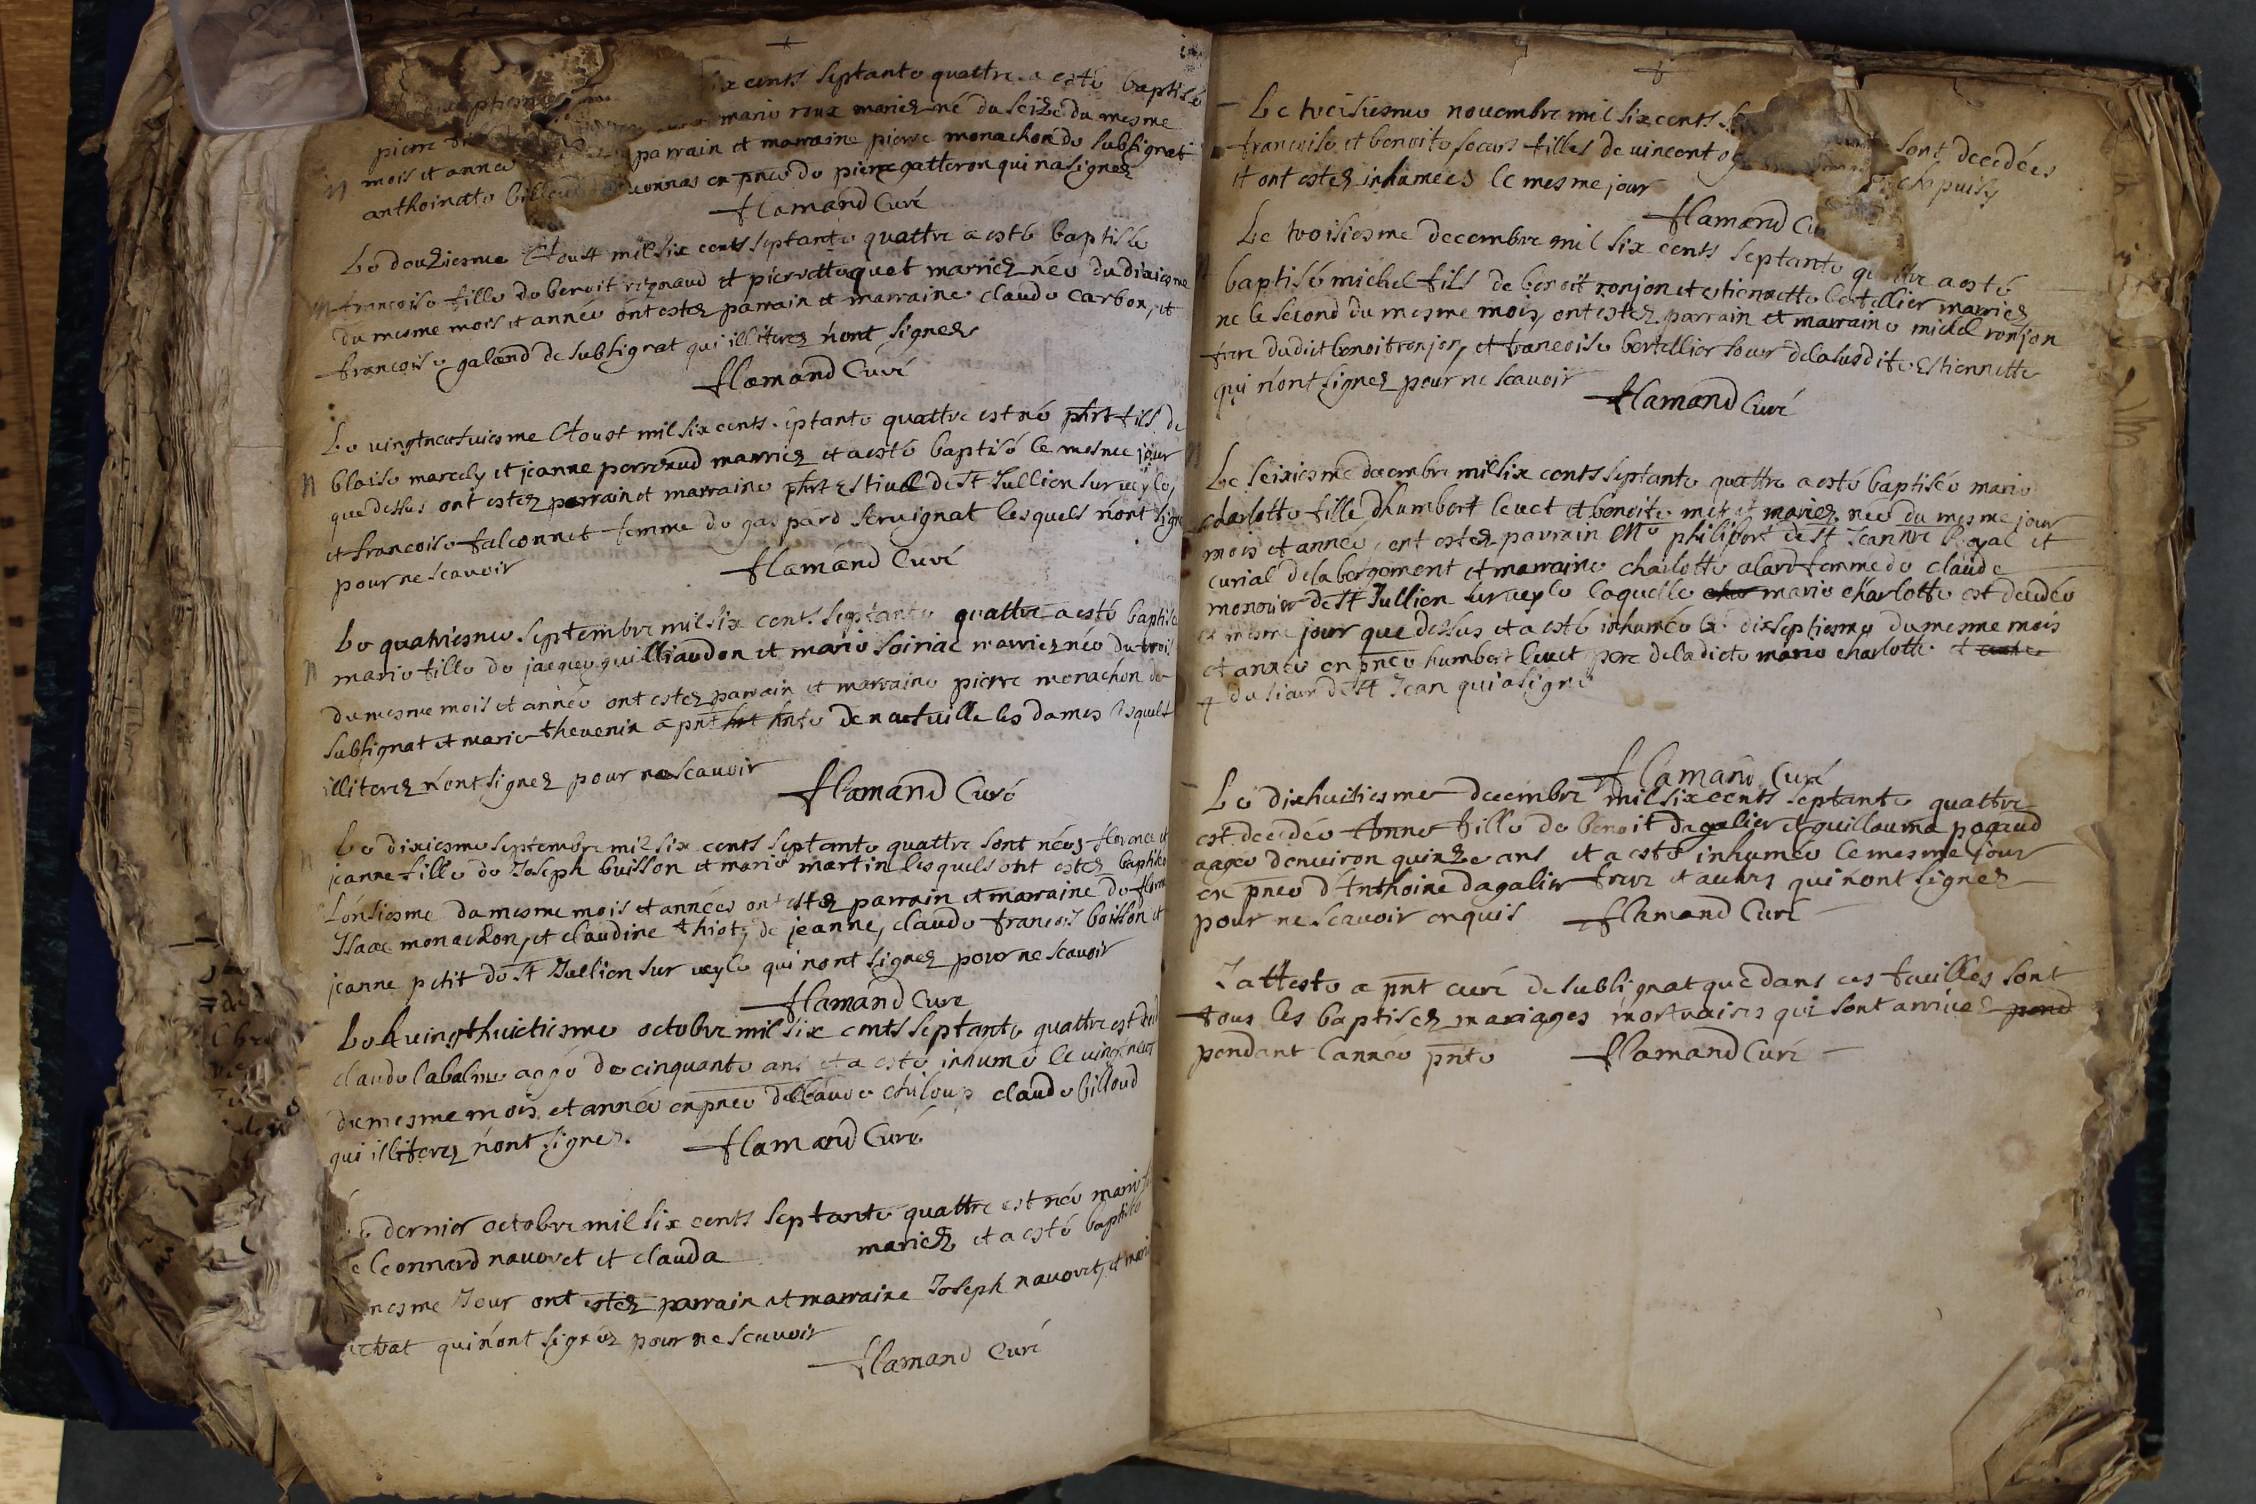 six cents septante quattre a esté baptisé
pierre marie roux mariez né du seize du mesme
mois et année parrain et marraine pierre monachon de subsignat
anthoinette billoud vonnas en pnce de pierre gatteron qui na signez
flamand Curé
Le douziesme Aoust mil six cents septante quattre a esté baptisée
francoise fille de benoit reynaud et pierrette quet marriez née du dixiesme
du mesme mois et année ont estez parrain et marraine claude carbon, et
francoise galand de subsignat qui illiterez n'ont signez
flamand Curé
Le vingtneufviesme Aoust mil six cents septante quattre est né phrt fils de
blaise marcely et jeanne perreaud marriez et a esté baptisé le mesme jour
que dessus ont estez parrain et marraine phrt Estivall de St Jullien sur veyle,
et francoise falconnet femme de gaspard servignat lesquels n'ont signe
pour ne scavoir
flamand Curé
Le quatriesme septembre mil six cents septante quattre a esté baptisé
marie fille de jacques guilliaudon et marie soiriac marriez née du trois
du mesme mois et année ont estez parrain et marraine pierre monachon de
subsignat et marie thevenin a pnt de neufville les dames lesquels
illiterez n'ont signez pour ne scavoir
flamand Curé
Le dixiesme septembre mil six cents septante quattre sont nées florence et
jeanne fille de Joseph buisson et marie martin lesquels ont estez baptisé
L'onsiesme du mesme mois et années ont estez parrain et marraine de floren
Isaac monachon, et claudine thiot, de jeanne, claude francois boisson et
jeanne petit de St Jullien sur veyle qui n'ont signez pour ne scavoir
flamand Curé
Le vingthuictiesme octobre mil six cents septante quattre est
claude labalme aagé de cinquante ans et a esté inhumé le vingt neuf
du mesme mois et année en pnce de claude chiloup claude billoud
qui illiterez n'ont signez. flamand Curé
dernier octobre mil six cents septante quattre est née marie
Leonnard navoret et clauda mariez et a esté baptisée
mesme Jour ont estez parrain et marraine Joseph navoret, et marie
qui n'ont signéz pour ne scavoir
flamand Curé
Le troisiesme novembre mil six cents sont decedées
francoise et benoite soeurs filles de vincent chapuisy
et ont estez inhumées le mesme jour
flamand Cu
Le troisiesme decembre mil six cents septante quattre a esté
baptisé michel fils de benoit ronjon et estiennette bertellier marriez
ne le second du mesme mois, ont estez parrain et marraine michel ronjon
frere dudict benoit ronjon, et francoise bertellier soeur de la susdite Estiennette
qui n'ont signez pour ne scavoir flamand Curé
Le seiziesme decembre mil six cents septante quattre a esté baptisée marie
charlotte fille d'humbert levet et benoite mariez née du mesme jour
mois et année, ont estez parrain Me philibert de St Jean Royal et
curial de la bergement et marraine charlotte alard femme de claude
monnier de St Jullien sur veyle laquelle marie charlotte est decedée
le mesme jour que dessus et a esté inhumée le dixseptiesme du mesme mois
et année en pnce humbert levet pere de la dicte marie charlotte et
du sieur de St Jean qui a signé
flamand Curé
Le dixhuitiesme decembre mil six cents septante quattre
est decedée Anne fille de benoit dagalier et guillauma pagaud
aagée d'environ quinze ans et a esté inhumée le mesme jour
en pnce d'Anthoine dagalier frere et autres qui n'ont signez
pour ne scavoir enquis flamand Curé
J'atteste a pnt curé de subsignat que dans ces feuilles sont
tous les baptisez mariages mortuaires qui sont arrivez pend
pendant l'année pnte flamand Curé